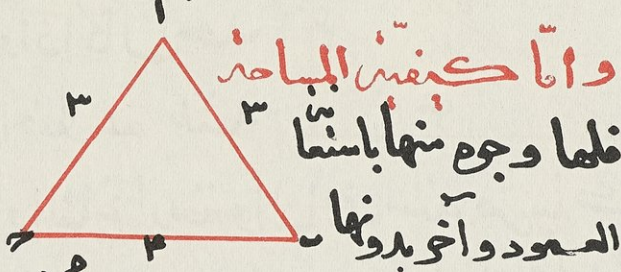 ا
واما كيفيّة المساحة
فلها وجوه منها باستعا
العمود وآخر بدونها
٣
٣
٣
ح
ب